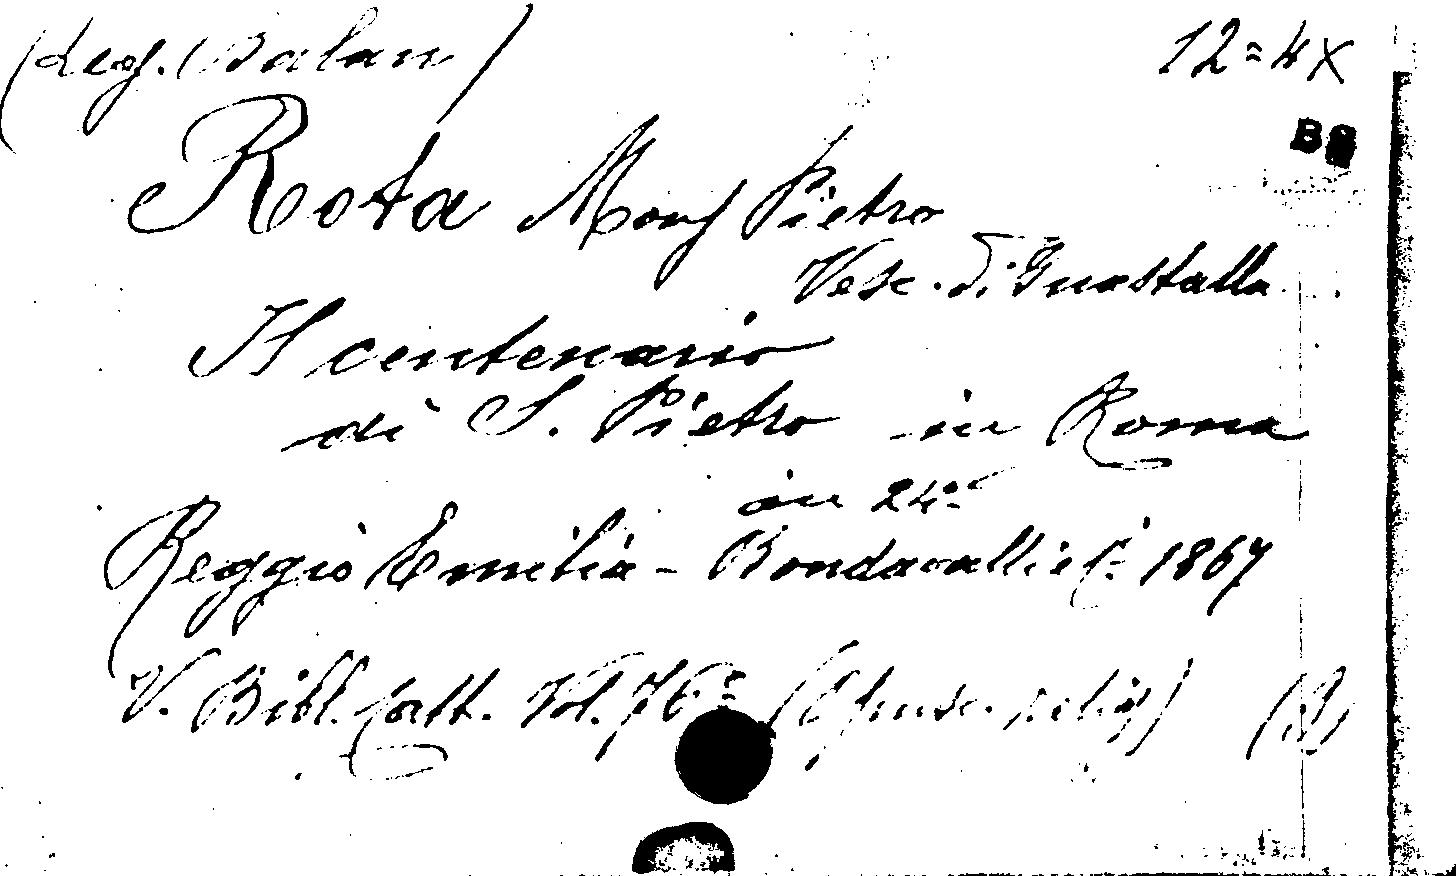 (Leg. Balan)
12=4X
Rota Mons Pietro
Vesc. di Guastalla
Il centenario
di S. Pietro in Roma
in 24°
Reggio Emilia - Bondavalli e C. 1867
V. Bibl. Catt. Vol. 76 (Opusc. relig)